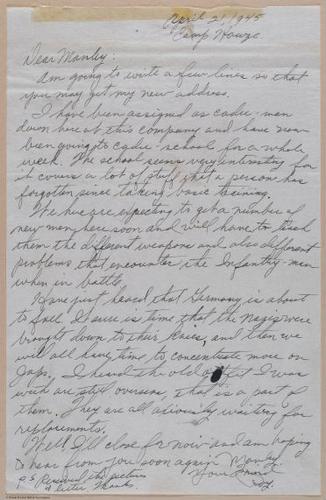 April 21, 1945
Camp Howze
Dear Manley:
Am going to write a few lines so that
you may get my new address.
I have been assigned as cadre-man
down here at this company and have now
been going to cadre-school for a whole
week. The school seems very interesting for
it covers a lot of stuff that a person has
forgotten since taking basic training.
We here are expecting to get a number of
new men here soon and will have to teach
them the different weapons and also different
problems that encounter the Infantry-men
when in battle.
Have just heard that Germany is about
to fall. I sure is time that the Nazis were
brought down to their knees, and then we
will all have time to concentrate more on
Japs. I heard the old outfit I was
with are still overseas, that is a part of
them. They are all anxiously waiting for
replacements.
Well I'll close for now and am hoping
to hear from you soon again Manley
P.S. Received the picture Your Friend
& letter Thanks